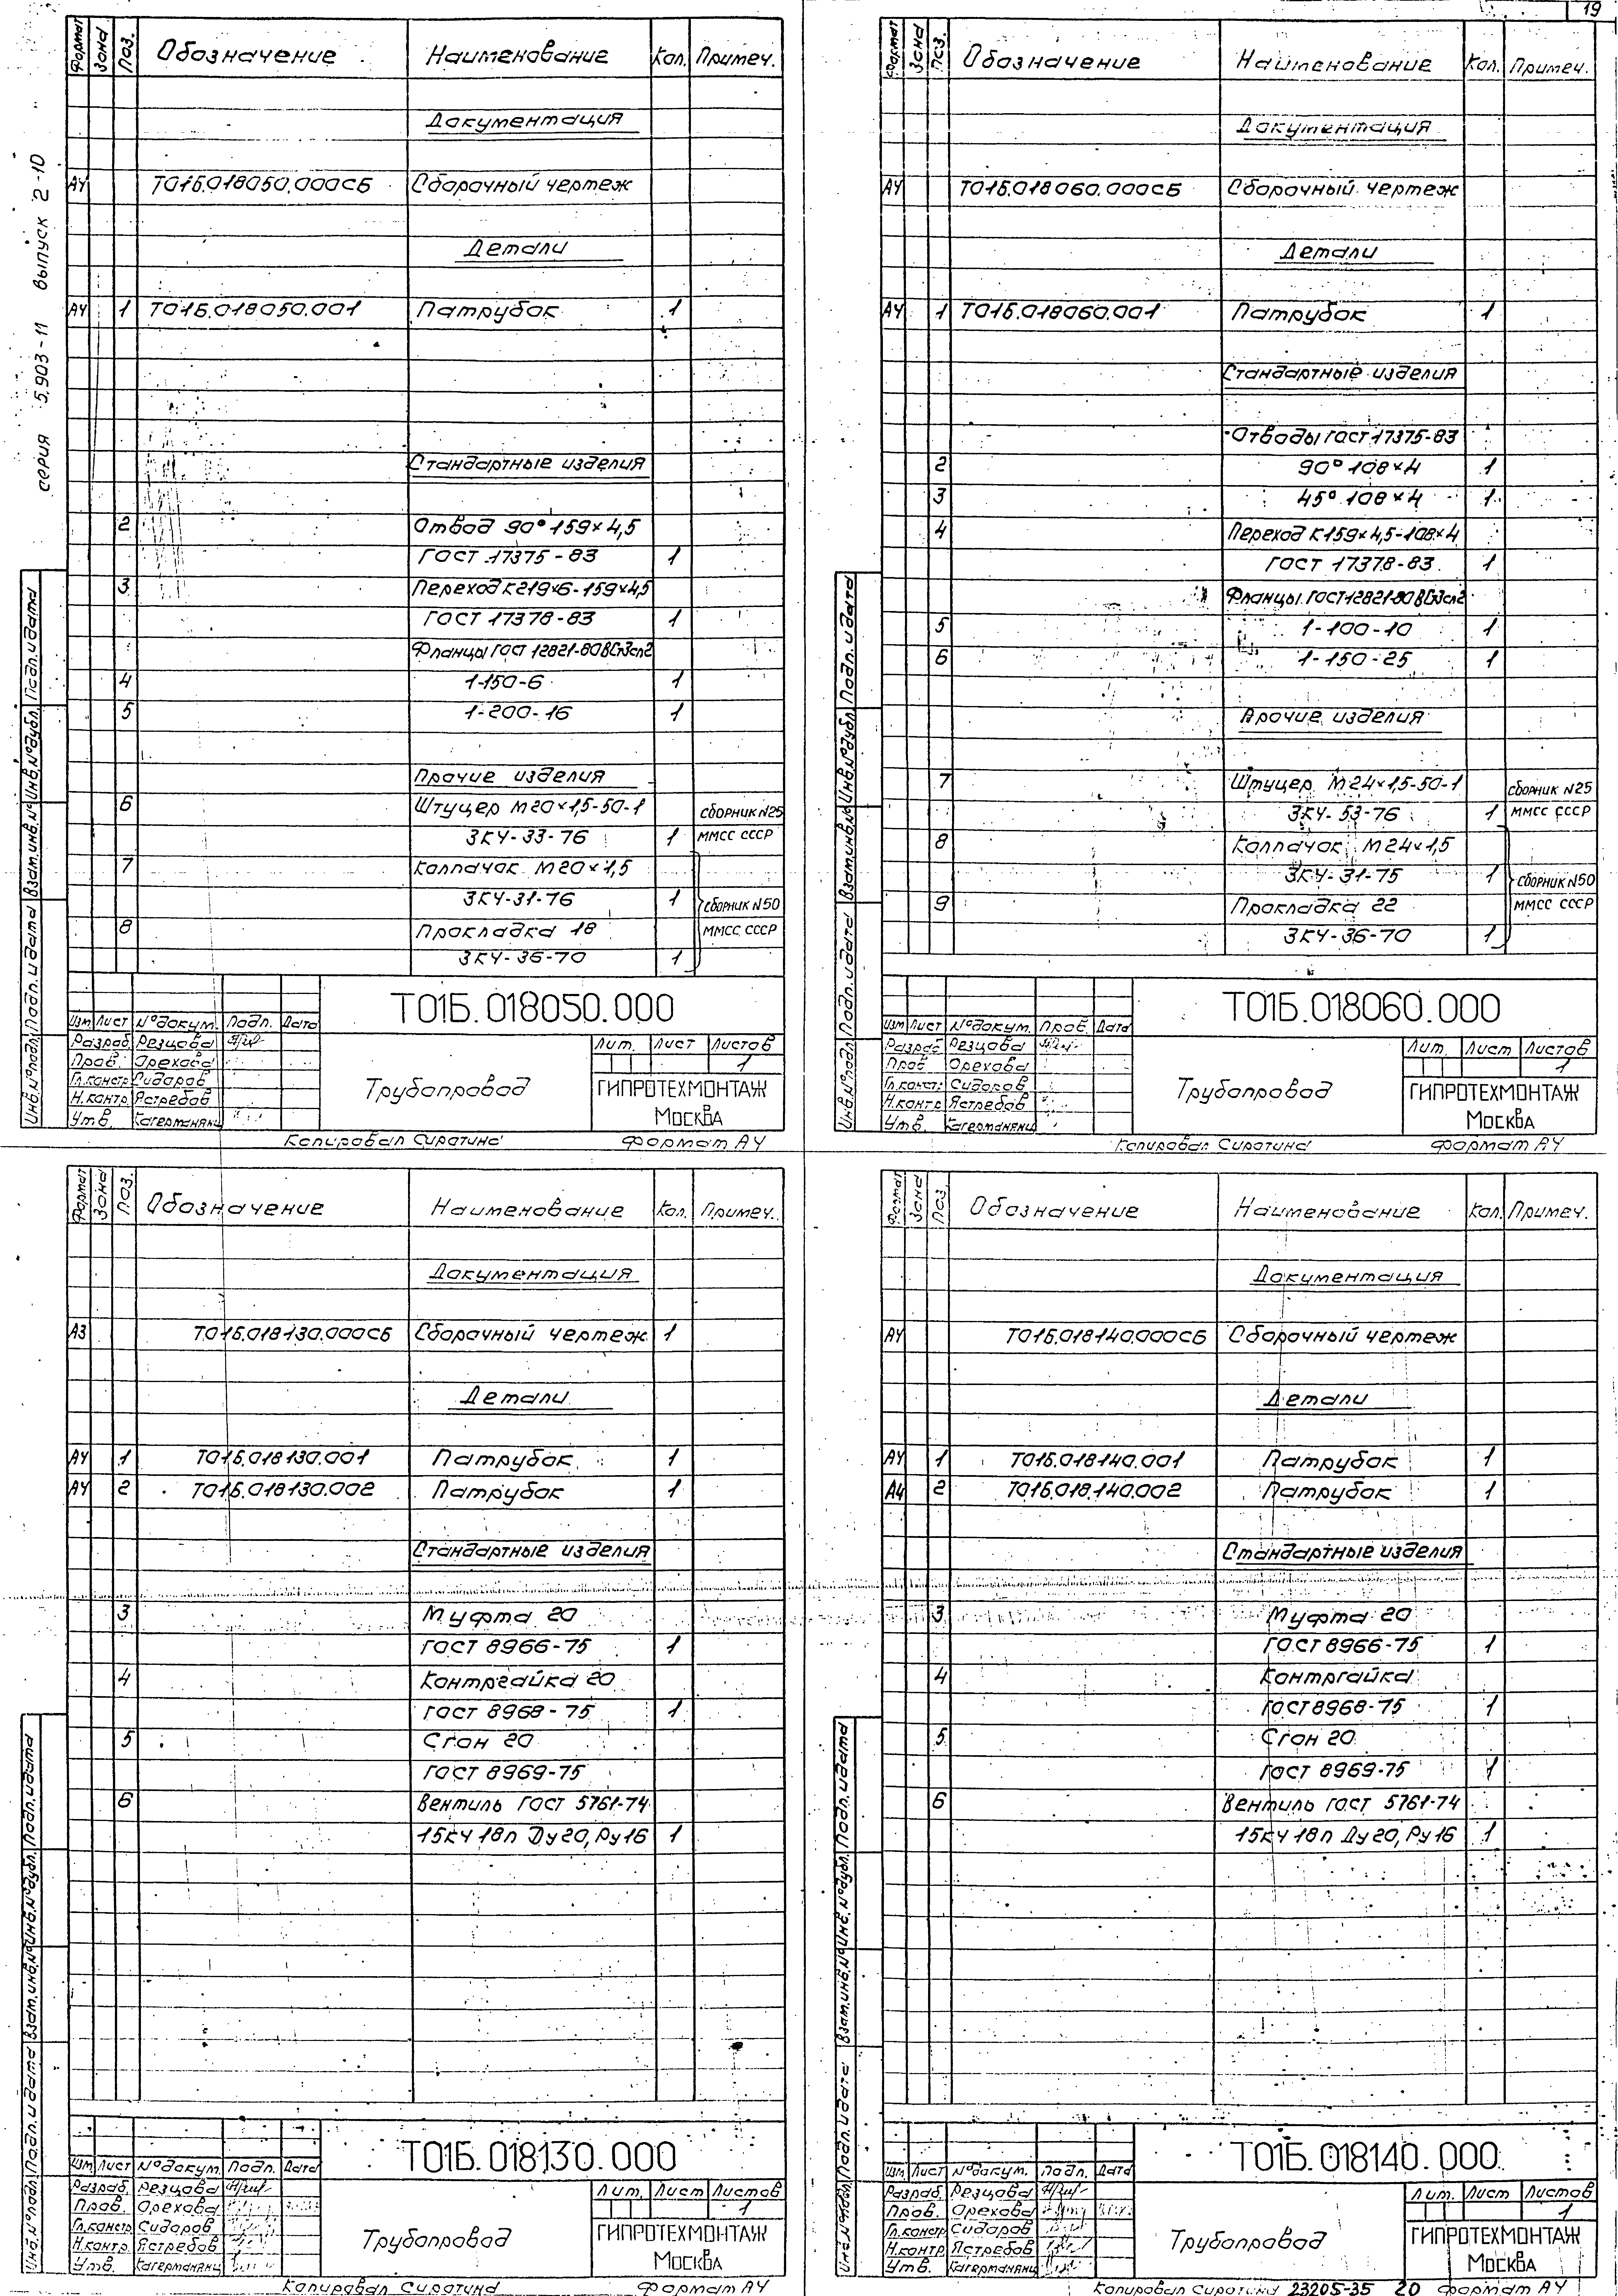 19
серия 5.903-11 выпуск 2-10
Формат Зона Поз. Обозначение Наименование Кол. Примеч.
Документация
А4 Т01Б.018050.000СБ Сборочный чертеж
Детали
А4 1 Т01Б.018050.001 Патрубок 1
Стандартные изделия
2 Отвод 90° 159×4,5
ГОСТ 17375-83 1
3 Переход К219×6-159×4,5
ГОСТ 17378-83 1
Фланцы ГОСТ 12821-80 ВСт3сп2
4 1-150-6 1
5 1-200-16 1
Прочие изделия
6 Штуцер М20×1,5-50-1 сборник N25
ЗК4-33-76 1 ММСС СССР
7 Колпачок М20×1,5
ЗК4-31-76 1 сборник N50
8 Прокладка 18 ММСС СССР
ЗК4-36-70 1
Инв.№подл. Подп. и дата Взам.инв.№ Инв.№дубл. Подп. и дата
Т01Б.018050.000
Изм Лист №докум. Подп. Дата
Разраб. Резцова
Пров. Орехова
Гл.констр. Сидоров
Н.контр. Ястребов
Утв. Кагерманянц
Трубопровод
Лит. Лист Листов
1
ГИПРОТЕХМОНТАЖ
Москва
Копировал Сиротина Формат А4
Формат Зона Поз. Обозначение Наименование Кол. Примеч.
Документация
А4 Т01Б.018060.000СБ Сборочный чертеж
Детали
А4 1 Т01Б.018060.001 Патрубок 1
Стандартные изделия
Отводы ГОСТ 17375-83
2 90° 108×4 1
3 45° 108×4 1
4 Переход К159×4,5-108×4
ГОСТ 17378-83 1
Фланцы ГОСТ 12821-80 ВСт3сп2
5 1-100-10 1
6 1-150-25 1
Прочие изделия
7 Штуцер М24×1,5-50-1 сборник N25
ЗК4-53-76 1 ММСС СССР
8 Колпачок М24×1,5
ЗК4-31-75 1 сборник N50
9 Прокладка 22 ММСС СССР
ЗК4-36-70 1
Инв.№подл. Подп. и дата Взам.инв.№ Инв.№дубл. Подп. и дата
Т01Б.018060.000
Изм Лист №докум. Проб. Дата
Разраб. Резцова
Пров Орехова
Гл.констр. Сидоров
Н.контр. Ястребов
Утв. Кагерманянц
Трубопровод
Лит. Лист Листов
1
ГИПРОТЕХМОНТАЖ
Москва
Копировал Сиротина Формат А4
Формат Зона Поз. Обозначение Наименование Кол. Примеч.
Документация
А3 Т01Б.018130.000СБ Сборочный чертеж 1
Детали
А4 1 Т01Б.018130.001 Патрубок 1
А4 2 Т01Б.018130.002 Патрубок 1
Стандартные изделия
3 Муфта 20
ГОСТ 8966-75 1
4 Контргайка 20
ГОСТ 8968-75 1
5 Сгон 20
ГОСТ 8969-75
6 Вентиль ГОСТ 5761-74
15кч 18п Ду20, Ру16 1
Инв.№подл. Подп. и дата Взам.инв.№ Инв.№дубл. Подп. и дата
Т01Б.018130.000
Изм Лист №докум. Подп. Дата
Разраб. Резцова
Пров. Орехова
Гл.констр Сидоров
Н.контр. Ястребов
Утв. Кагерманянц
Трубопровод
Лит. Лист Листов
1
ГИПРОТЕХМОНТАЖ
Москва
Копировал Сиротина Формат А4
Формат Зона Поз. Обозначение Наименование Кол. Примеч.
Документация
А4 Т01Б.018140.000СБ Сборочный чертеж
Детали
А4 1 Т01Б.018140.001 Патрубок 1
А4 2 Т01Б.018140.002 Патрубок 1
Стандартные изделия
3 Муфта 20
ГОСТ 8966-75 1
4 Контргайка
ГОСТ 8968-75 1
5 Сгон 20
ГОСТ 8969-75 1
6 Вентиль ГОСТ 5761-74
15кч 18п Ду20, Ру16 1
Инв.№подл. Подп. и дата Взам.инв.№ Инв.№дубл. Подп. и дата
Т01Б.018140.000
Изм. Лист №докум. Подп. Дата
Разраб. Резцова
Пров. Орехова
Гл.констр Сидоров
Н.контр. Ястребов
Утв. Кагерманянц
Трубопровод
Лит. Лист Листов
1
ГИПРОТЕХМОНТАЖ
Москва
Копировал Сиротина 23205-35 20 Формат А4